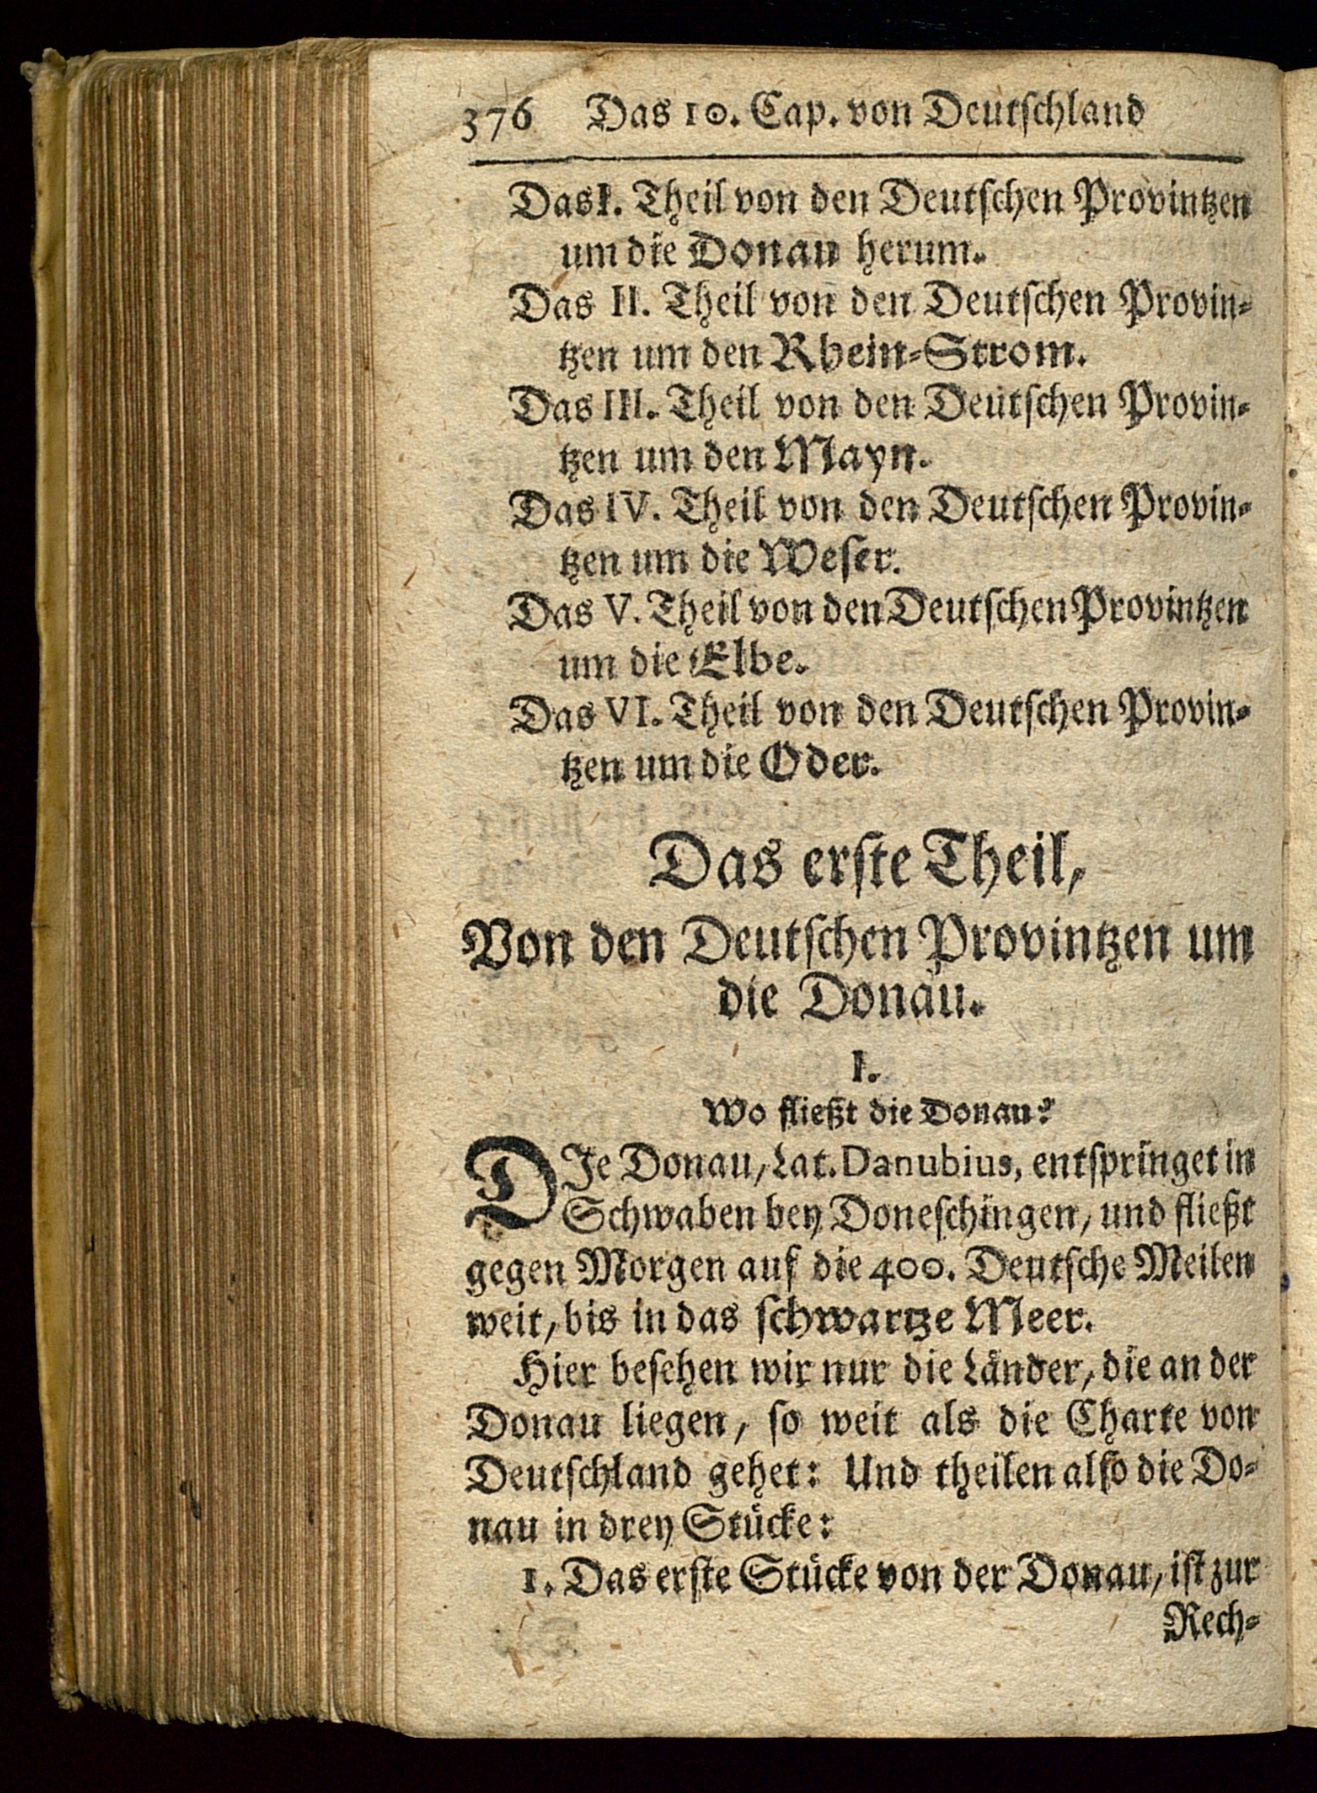 376 Das 10. Cap. von Deutschland
Das I. Theil von den Deutschen Provintzen
um die Donau herum.
Das II. Theil von den Deutschen Provin-
tzen um den Rhein-Strom.
Das III. Theil von den Deutschen Provin-
tzen um den Mayn.
Das IV. Theil von den Deutschen Provin-
tzen um die Weser.
Das V. Theil von den Deutschen Provintzen
um die Elbe.
Das VI. Theil von den Deutschen Provin-
tzen um die Oder.
Das erste Theil,
Von den Deutschen Provintzen um
die Donau.
I.
Wo fließt die Donau?
DIe Donau, Lat. Danubius, entspringet in
Schwaben bey Doneschingen, und fließt
gegen Morgen auf die 400. Deutsche Meilen
weit, bis in das schwartze Meer.
Hier besehen wir nur die Länder, die an der
Donau liegen, so weit als die Charte von
Deutschland gehet: Und theilen also die Do-
nau in drey Stücke:
1. Das erste Stücke von der Donau, ist zur
Rech-